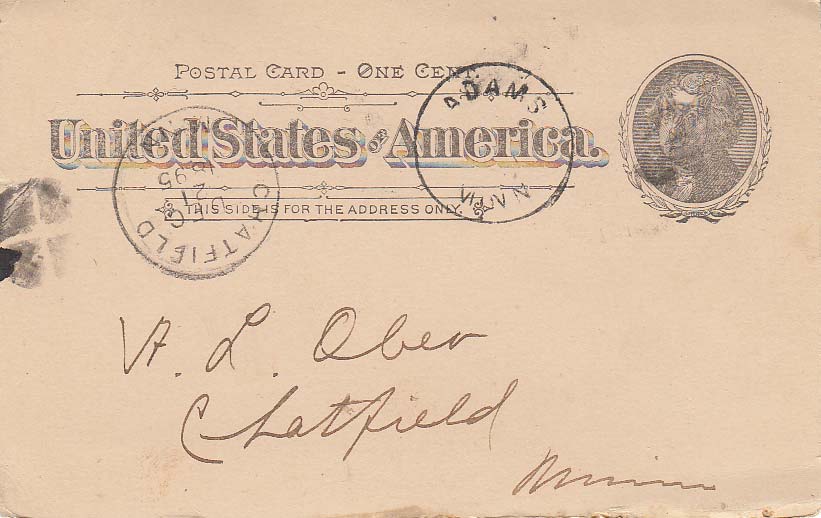 POSTAL CARD - ONE CENT.
United States OF America.
THIS SIDE IS FOR THE ADDRESS ONLY.
ADAMS
MINN
CHATFIELD
DEC
21
1895
MINN
H. L. Ober
Chatfield
Minn